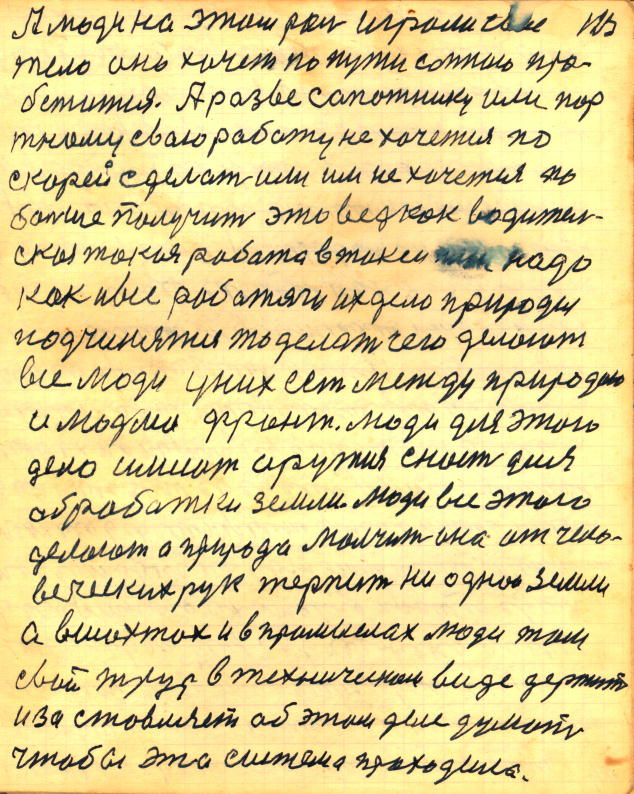 А люди на этом рол играли свое
тело оно хочет по пути сотною про-
бетится. А разве сапотнику или пор
тному сваю работу не хочется по
скорей сделат или им не хочется по
болше получит это вед как водител-
ская токая работа в токси надо
как и все работяги их дело природы
подчинятся то делат чего делоют
все люди у них ест между природою
и людми фронт. люди для этого
дело имиют аружия снаст для
обработки земли. Люди все этого
делоют а природа молчит она от чело-
веческих рук терпит не одною земли
а в шохтох и в промыслах люди там
свой труд в техническом виде держит
и застовляет об этом деле думоть
чтобы эта система проходила.